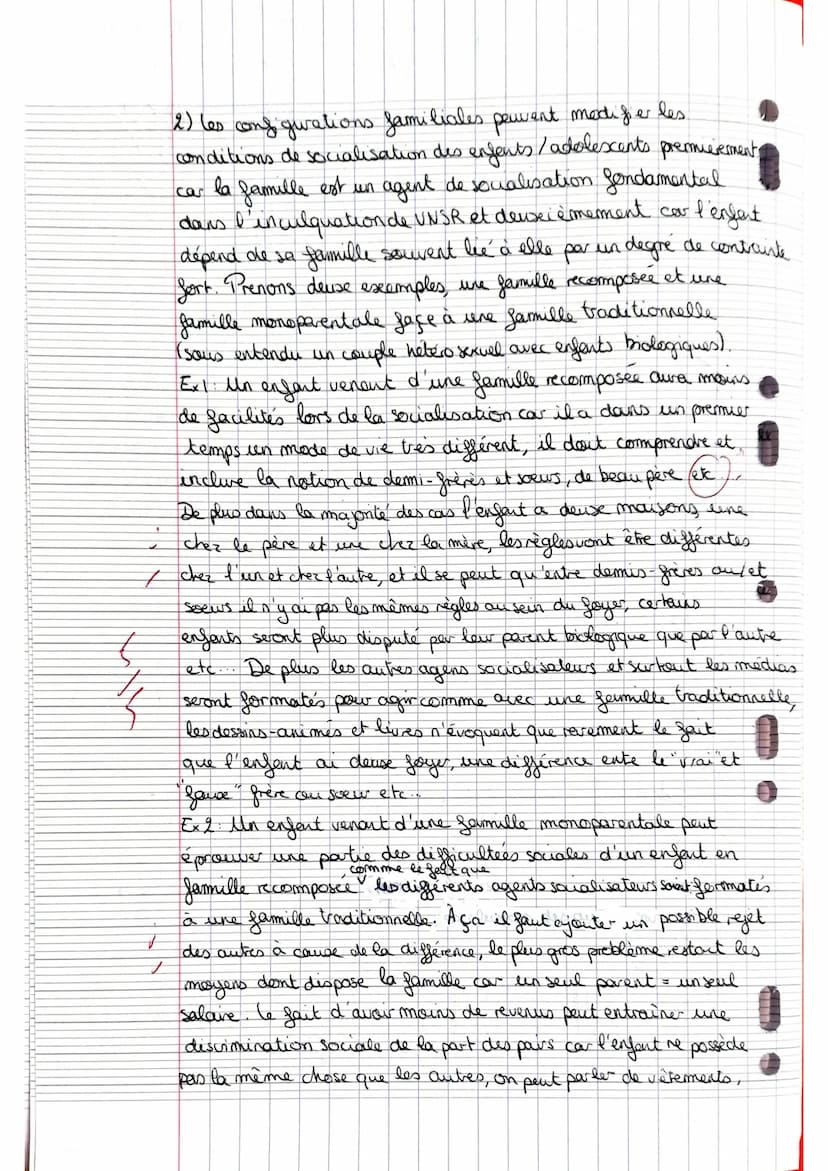 2) Les configurations familiales peuvent modifier les
conditions de socialisation des enfants/adolescents premmièrement
car la famille est un agent de socialisation fondamental
dans l'inculquation de VNSR et deuxièmement car l'enfant
dépend de sa famille souvent lié à elle par un degré de contrainte
fort. Prenons deux exemples, une famille recomposée et une
famille monoparentale façe à une famille traditionnelle
(sous entendu un couple hétéro sexuel avec enfants biologiques).
Ex1: Un enfant venant d'une famille recomposée aura moins
de facilités lors de la socialisation car il a dans un premier
temps un mode de vie très différent, il doit comprendre et
inclure la notion de demi-frères et soeurs, de beau père etc...
De plus dans la majorité des cas l'enfant a deux maisons, une
chez le père et une chez la mère, les règles vont être différentes
chez l'un et chez l'autre, et il se peut qu'entre demis-frères ou/et
soeurs il n'y ai pas les mêmes règles au sein du foyer, certains
enfants seront plus disputé par leur parent biologique que par l'autre
etc... De plus les autres agens socialisateurs et surtout les médias
seront formatés pour agir comme avec une famille traditionnelle,
les dessins-animés et livres n'évoquent que rarement le fait
que l'enfant ai deux foyer, une différence ente le "vrai" et
"faux" frère ou soeur etc...
Ex2: Un enfant venant d'une famille monoparentale peut
éprouver une partie des difficultées sociales d'un enfant en
famille recomposée comme le fait que les différents agents socialisateurs soient formatés
à une famille traditionnelle. À ça il faut ajouter un possible rejet
des autres à cause de la différence, le plus gros problème restant les
moyens dont dispose la famille car un seul parent = un seul
salaire. Le fait d'avoir moins de revenus peut entraîner une
discrimination sociale de la part des pairs car l'enfant ne possède
pas la même chose que les autres, on peut parler de vêtements,